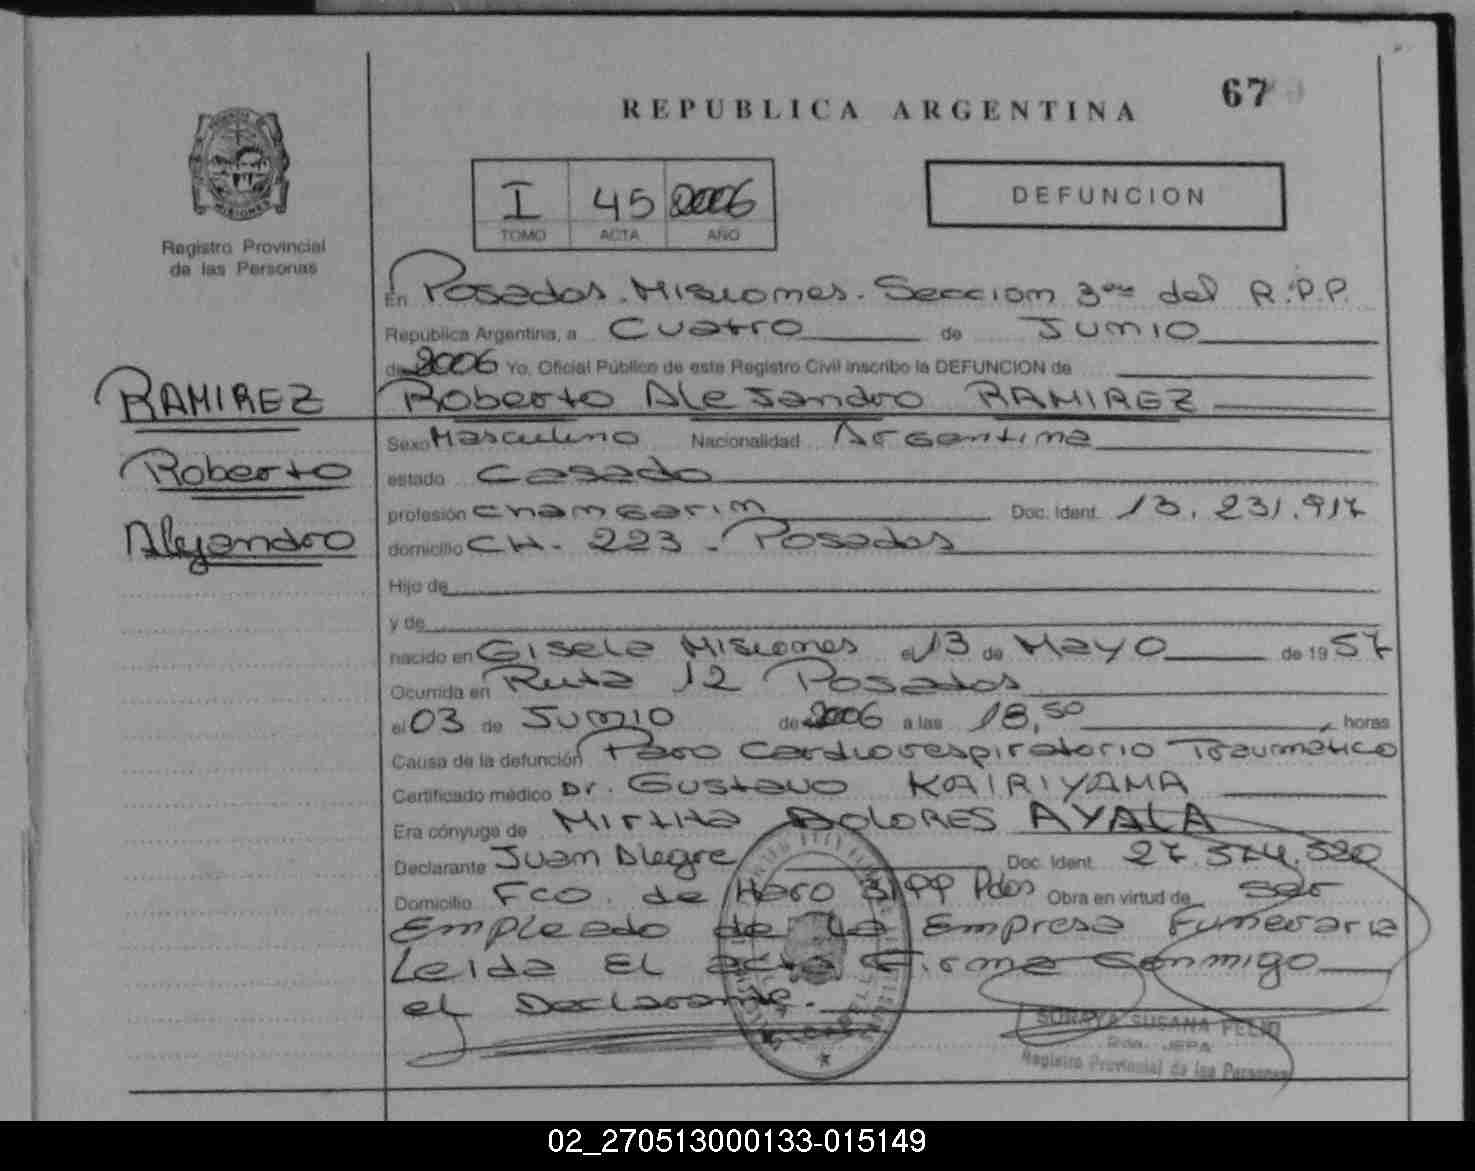 67
REPUBLICA ARGENTINA
DEFUNCION
I 45 2006
TOMO ACTA AÑO
MISIONES
Registro Provincial
de las Personas
En Posadas. Misiones. Seccion 3era del R.P.P.
República Argentina, a Cuatro de Junio
de 2006 Yo, Oficial Público de este Registro Civil inscribo la DEFUNCION de
RAMIREZ
Roberto
Alejandro
Roberto Alejandro RAMIREZ
Sexo Masculino Nacionalidad Argentina
estado Casado
profesión changarin Doc. Ident. 13.231.917
domicilio CH. 223 - Posadas
Hijo de
y de
nacido en Gisela Misiones el 13 de Mayo de 1957
Ocurrida en Ruta 12 Posadas
el 03 de Junio de 2006 a las 18,50 horas
Causa de la defunción Paro Cardiorespiratorio Traumatico
Certificado médico Dr. Gustavo KAIRIYAMA
Era cónyuge de Mirtha DOLORES AYALA
Declarante Juan Alegre Doc. Ident. 27.574.520
Domicilio Fco. de Haro Pdas Obra en virtud de ser
Empleado de la Empresa Funeraria
Leida El acta Firma Conmigo
el Declarante.
SORAYA SUSANA
JEFA
Registro Provincial de las Personas
02_270513000133-015149